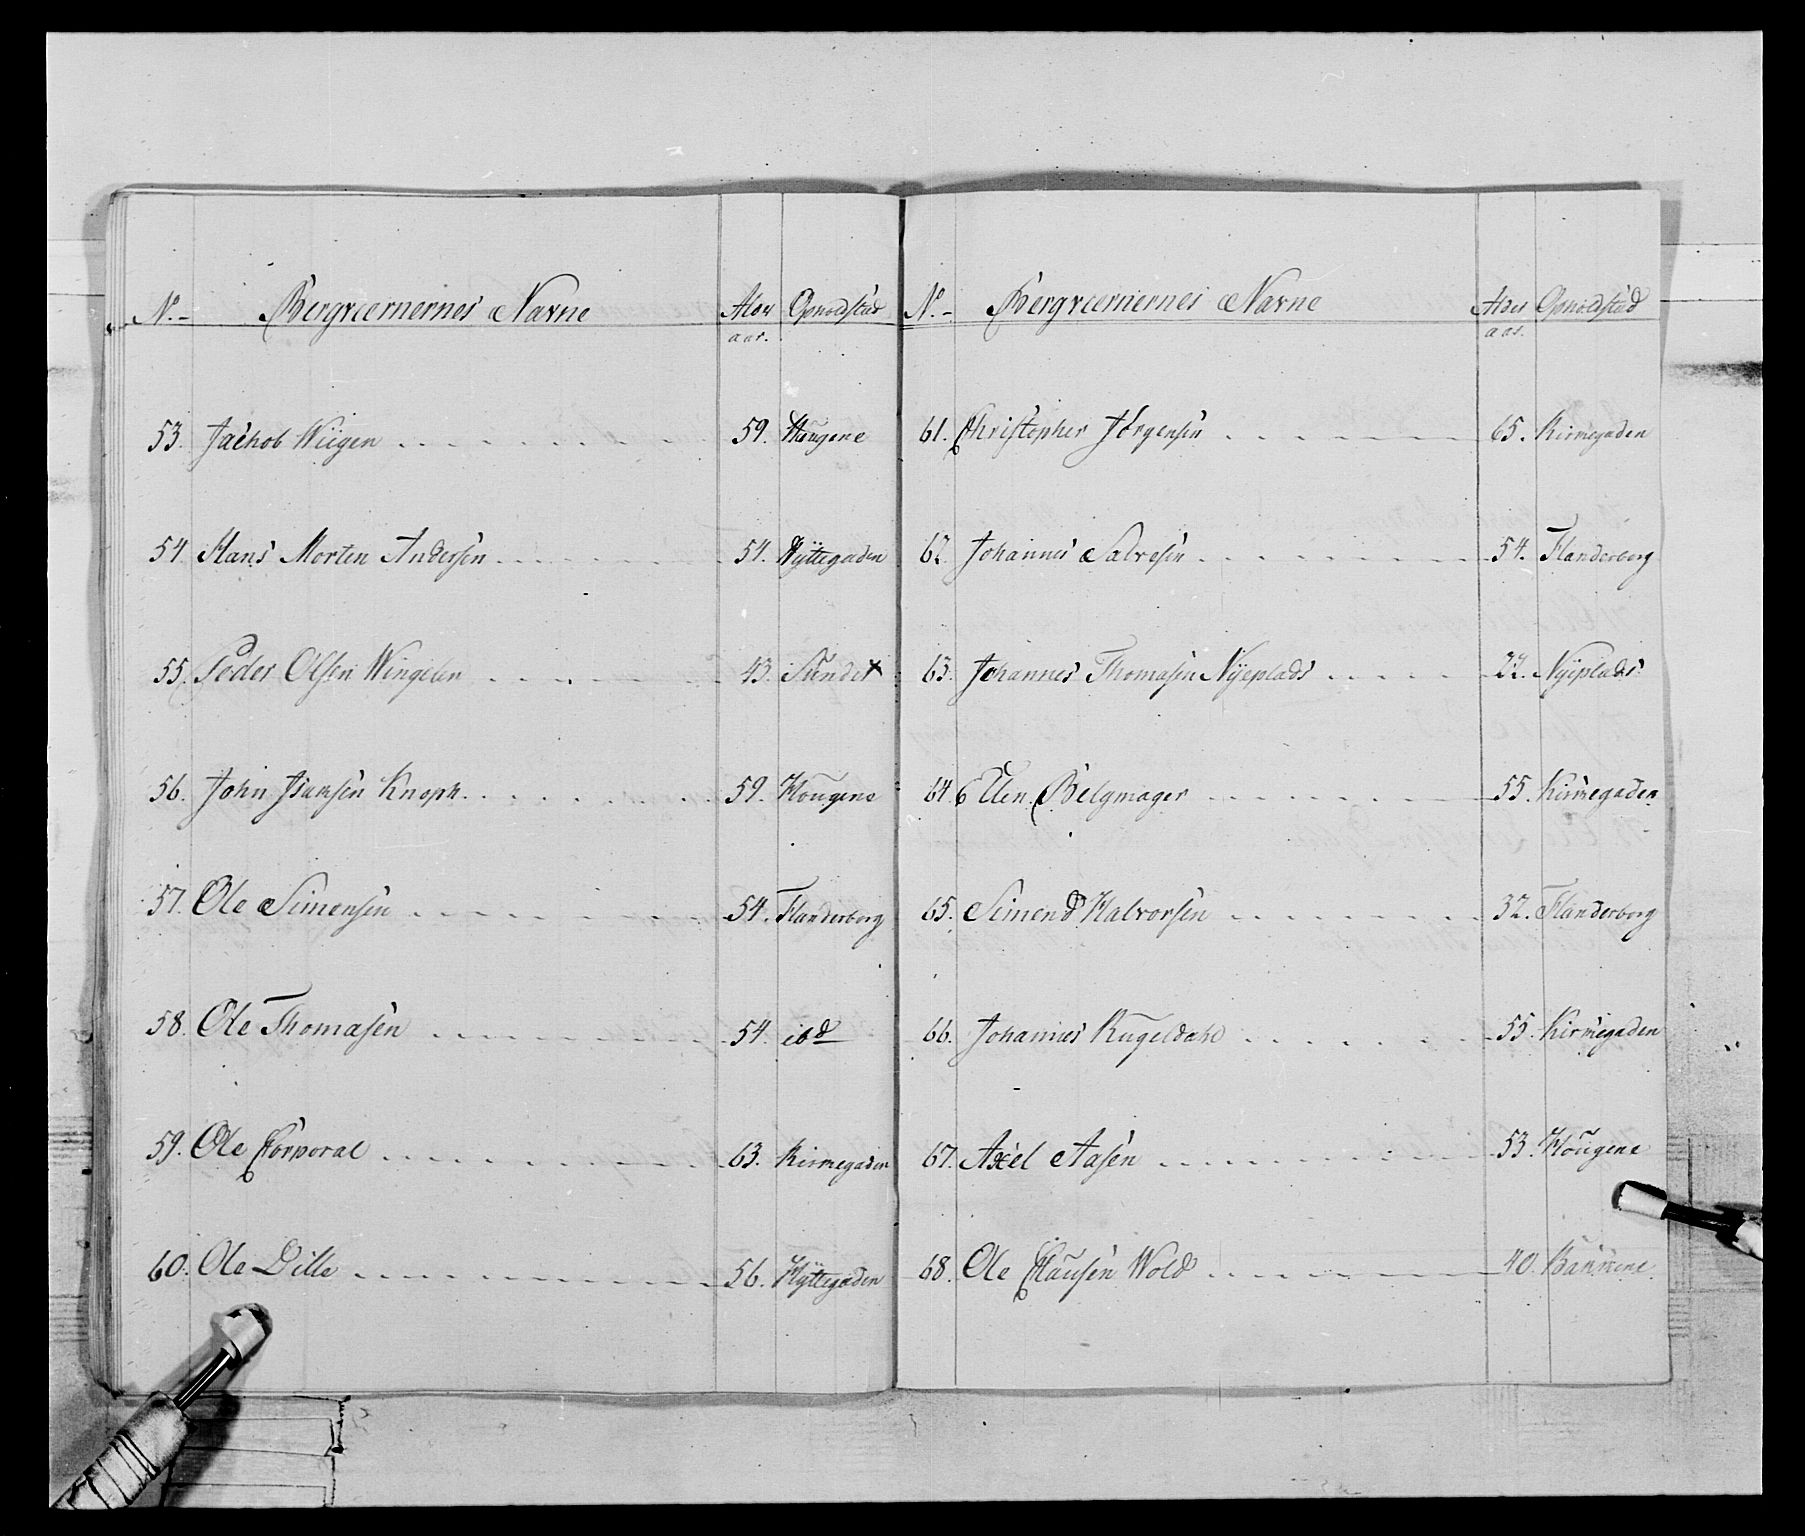 No. Bergværnernes Navne Alder Opholdstæd
aar.
53. Jachob Wiigen 59. Hougene
54. Hans Morten Andersen 54. Hÿttegaden
55. Peder Olsen Wingelen 43. Sundet
56. John Knoph 59. Hougene
57. Ole Simensen 54. Flanderborg
58. Ole Thomasen 54. ibd
59. Ole Corporal 63. Kirnegaden
60. Ole Dille 56. Hÿttegaden
No. Bergværnernes Navne Alder Opholdstæd
aar.
61. Christopher Jörgensen 65. Kirnegaden
62. Johannes Salvesen 54. Flanderborg
63. Johannes Thomasen Nÿeplads 22. Nÿeplads
64. Elen Belgmager 55. Kirnegaden
65. Simend Halvorsen 32. Flanderborg
66. Johannes Kugeldahl 55. Kirnegaden
67. Axel Aasen 53. Hougene
68. Ole Clausen Wold 40. Bannene